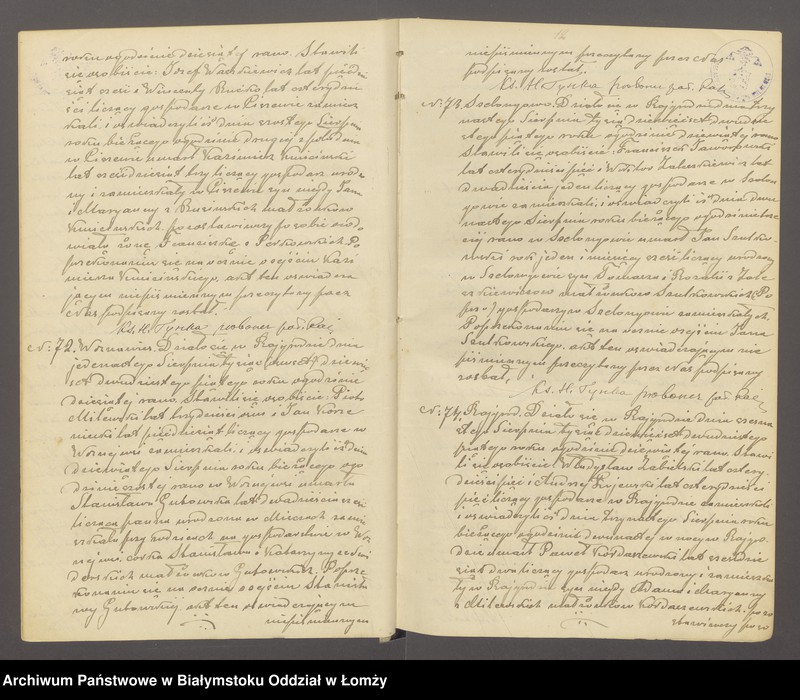 roku o godzinie dziesiątej rano. Stawili
się osobiście: Józef Waszkiewicz lat pięćdzie
siąt sześć i Wincenty lat czterydzie
ści liczący gospodarze w zamiesz
kali, i oświadczyli iż dnia szóstego Sierpnia
roku bieżącego o godzinie drugiej z południa
w umarł Kazimierz
lat sześćdziesiąt trzy liczący gospodarz urodzo
ny i zamieszkały w syn niegdy Jana
i Maryanny z małżonków
pozostawiwszy po sobie owdo
wiałą żonę Franciszkę z Po
przekonaniu się naocznie o zejściu Kazi
mierza akt ten oświadcza
jącym niepiśmiennym przeczytany przez
Nas podpisany został.
Ks. H. Tyszka proboszcz par. Raj.
No 72. Woźnawieś. Działo się w Rajgrodzie dnia
jedenastego Sierpnia tysiąc dziewię
set dwudziestego piątego roku o godzinie
dziesiątej rano. Stawili się osobiście: Piotr
Milewski lat trzydzieści osiem i Jan
lat pięćdziesiąt liczący gospodarze w
Woźnejwsi zamieszkali, i oświadczyli iż dnia
dziewiątego Sierpnia roku bieżącego o go
dzinie szóstej rano w Woźnejwsi umarła
Stanisława Gutowska lat dwadzieścia
licząca panna urodzona w zamie
szkała przy rodzicach na gospodarstwie w Woź
nejwsi, córka Stanisława i Katarzyny
małżonków Gutowskich. Po prze
konaniu się naocznie o zejściu Stanisła
wy Gutowskiej akt ten oświadczającym
niepiśmiennym
niepiśmiennym przeczytany przez Nas
podpisany został.
Ks. H. Tyszka proboszcz par. Raj.
No 73. Sołczykowo. Działo się w Rajgrodzie dnia trzy
nastego Sierpnia tysiąc dziewięćset dwudzie
stego piątego roku o godzinie dziewiątej rano
Stawili się osobiście: Franciszek
lat czterydzieści pięć i Wiktor Zalewski lat
dwadzieścia jeden liczący gospodarze w
zamieszkali, i oświadczyli iż dnia dwu
nastego Sierpnia roku bieżącego o godzinie trze
ciej rano w umarł Jan Szutko
wski rok jeden i miesięcy sześć liczący urodzony
w syn Tomasza i Rozalii z
małżonków Szutkowskich
gospodarzy w zamieszkałych.
Po przekonaniu się naocznie o zejściu Jana
Szutkowskiego, akt ten oświadczającym nie
piśmiennym przeczytany przez Nas podpisany
został.
Ks. H. Tyszka proboszcz par. Raj.
No 74. Rajgród. Działo się w Rajgrodzie dnia czterna
stego Sierpnia tysiąc dziewięćset dwudziestego
piątego roku o godzinie dziewiątej rano. Stawi
li się osobiście: Władysław Zabielski lat cztery
dzieści pięć i Andrzej lat czterydzieści
pięć liczący gospodarze w Rajgrodzie zamieszkali
i oświadczyli iż dnia trzynastego Sierpnia roku
bieżącego o godzinie dwunastej w nocy w Rajgro
dzie umarł Paweł Kordaszewski lat sześćdzie
siąt dwa liczący gospodarz urodzony i zamieszka
ły w Rajgrodzie syn niegdy Adama i Maryanny
z Milewskich małżonków Kordaszewskich, pozo
stawiwszy po so
Archiwum Państwowe w Białymstoku Oddział w Łomży